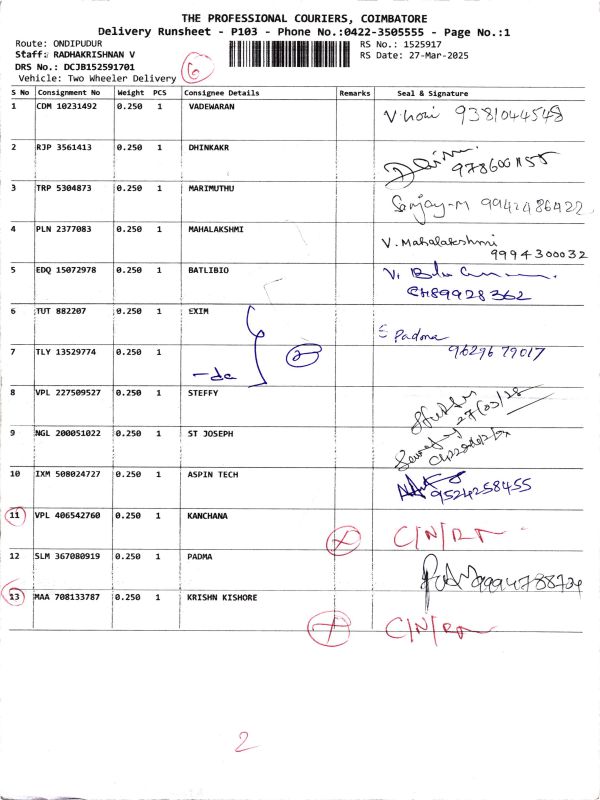 THE PROFESSIONAL COURIERS, COIMBATORE
Delivery Runsheet - P103 - Phone No.:0422-3505555 - Page No.:1
Route: ONDIPUDUR
RS No.: 1525917
Staff: RADHAKRISHNAN V
RS Date: 27-Mar-2025
DRS No.: DCJB152591701
Vehicle: Two Wheeler Delivery
6
S No Consignment No Weight PCS Consignee Details Remarks Seal & Signature
1 CDM 10231492 0.250 1 VADEWARAN 9381044548
2 RJP 3561413 0.250 1 DHINKAKR
3 TRP 5304873 0.250 1 MARIMUTHU Sanjay-M 9942486422
4 PLN 2377083 0.250 1 MAHALAKSHMI V. Mahalakshmi
9994300032
5 EDQ 15072978 0.250 1 BATLIBIO
6 TUT 882207 0.250 1 EXIM
Padma
7 TLY 13529774 0.250 1 9629679017
2
8 VPL 227509527 0.250 1 STEFFY
9 NGL 200051022 0.250 1 ST JOSEPH
10 IXM 508024727 0.250 1 ASPIN TECH 9524258455
11 VPL 406542760 0.250 1 KANCHANA
12 SLM 367080919 0.250 1 PADMA
13 MAA 708133787 0.250 1 KRISHN KISHORE
2